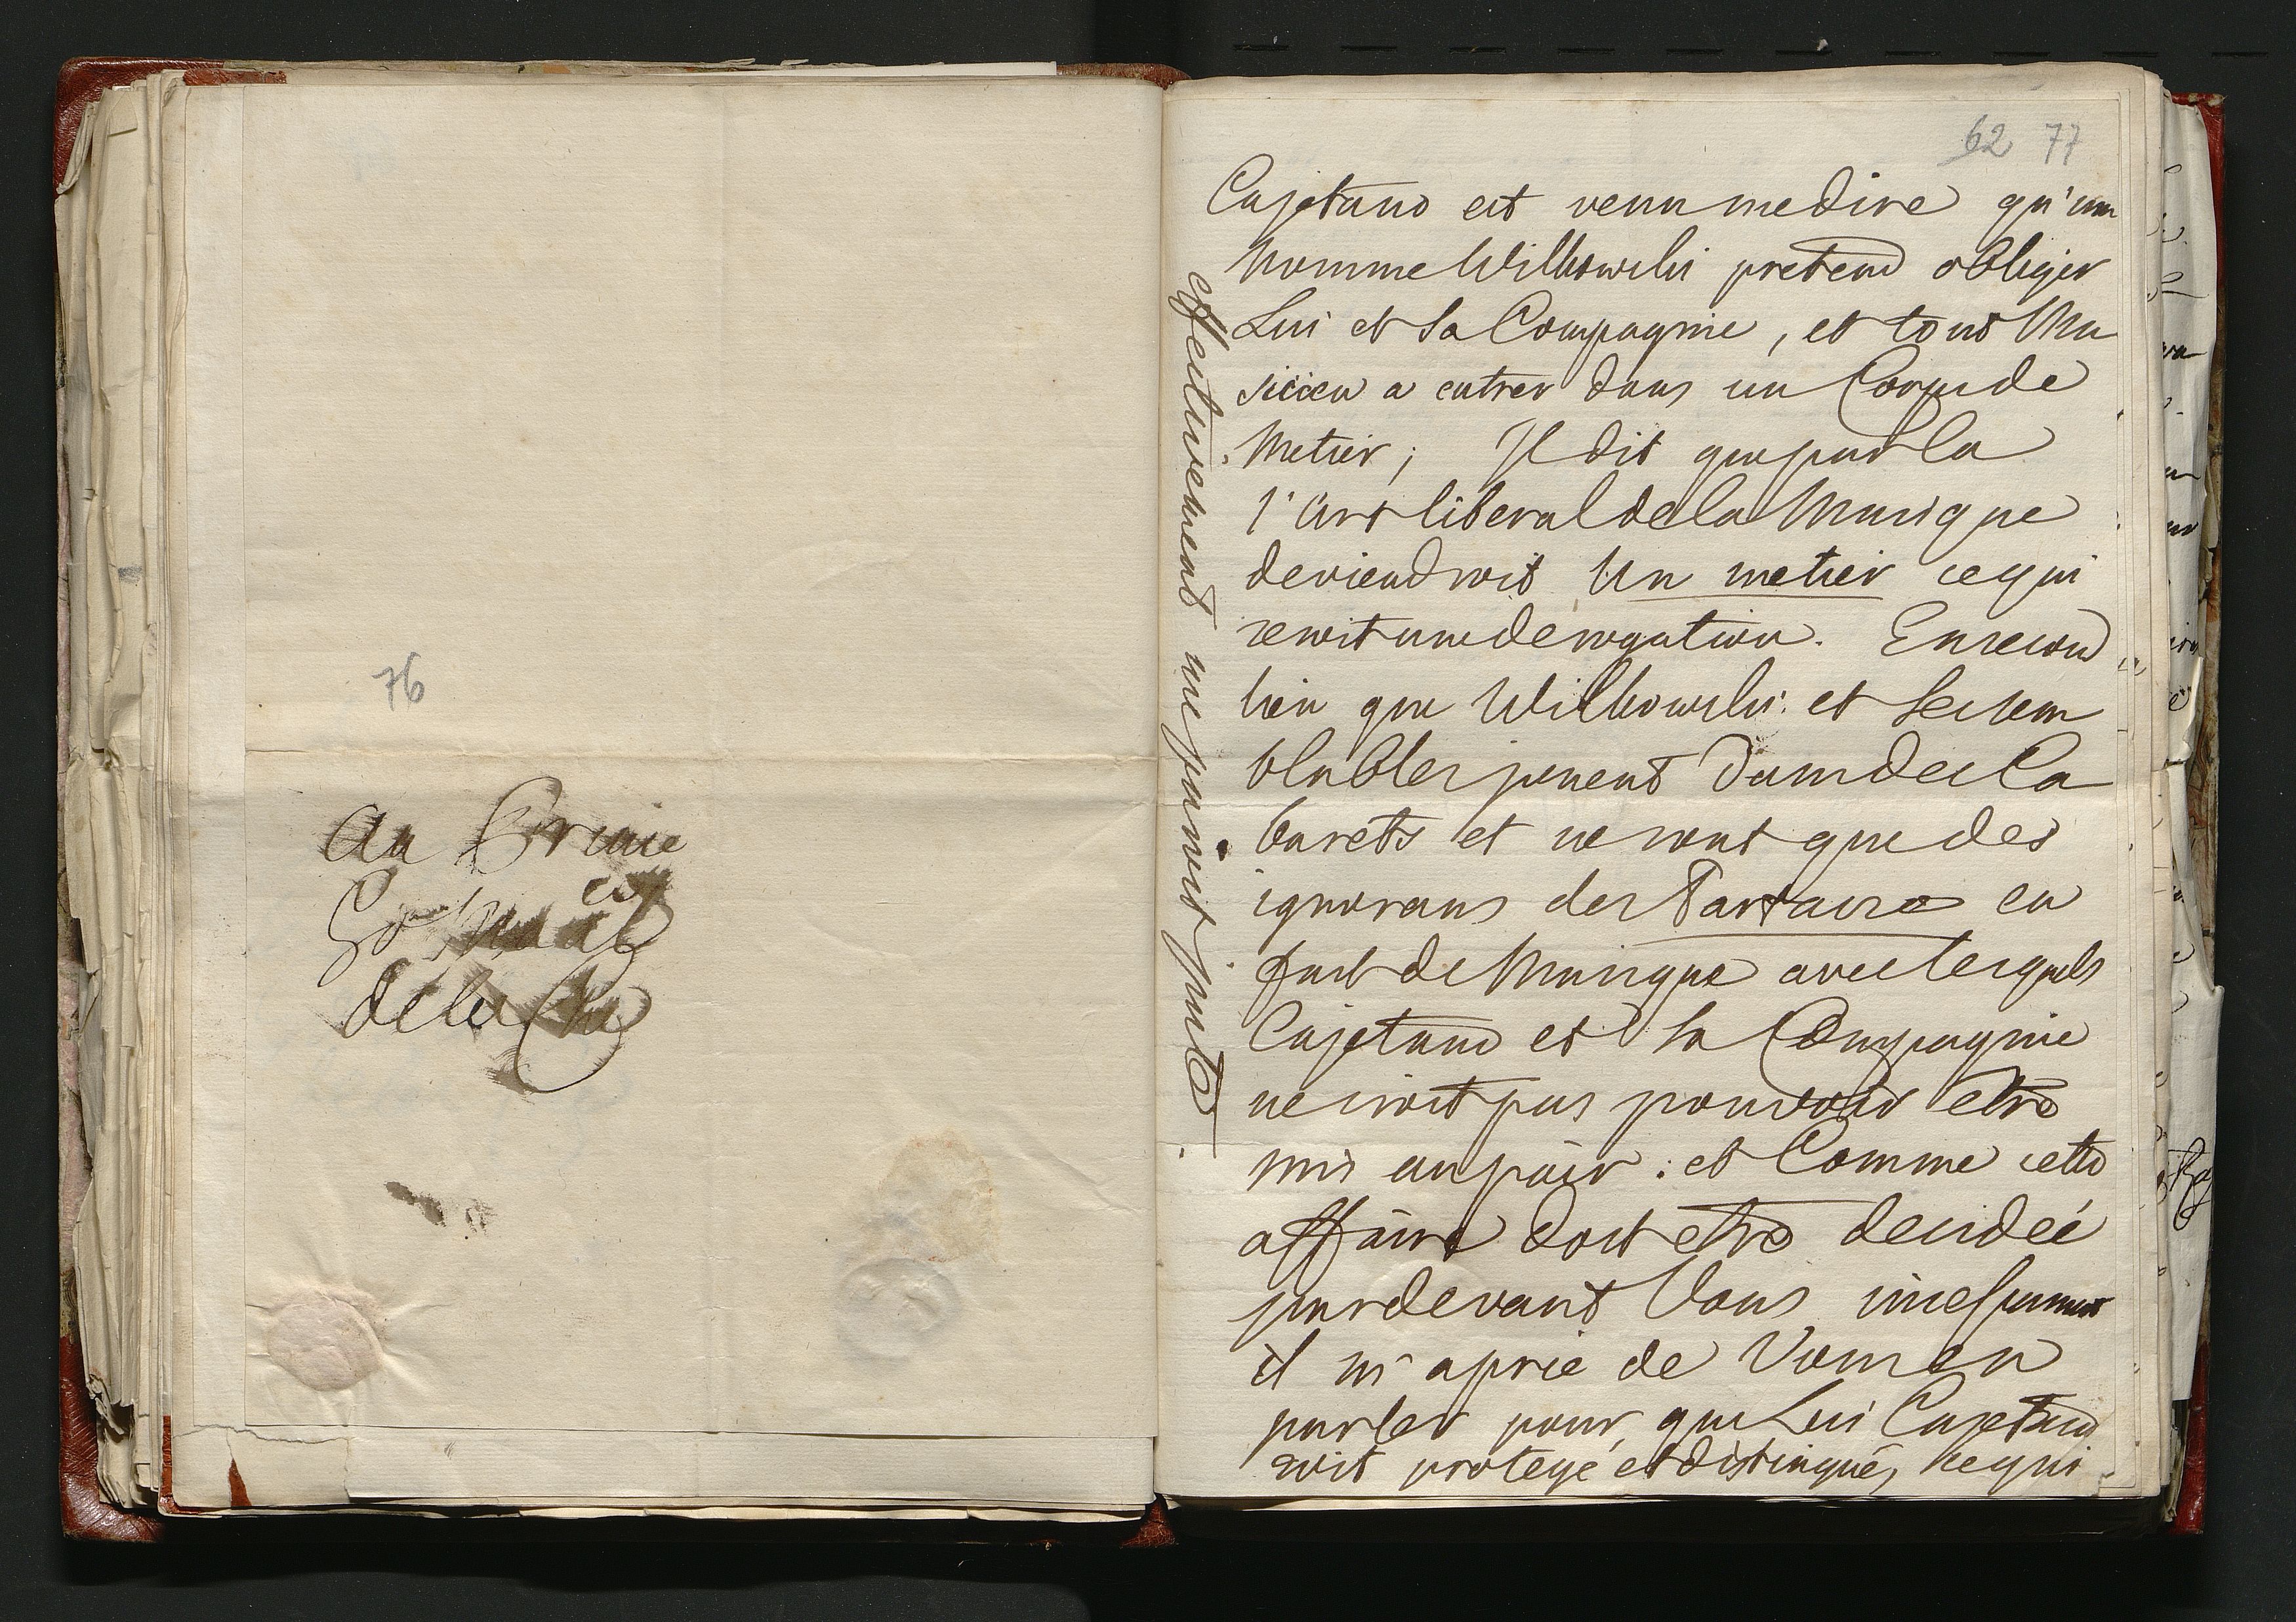 76
au Prince
de la
62 77
Cajetano est venu me dire qu'un
nommé Wilkowski pretend obliger
Lui et Sa Compagnie, et tout Mu
sicien a entrer dans un Corps de
Metier; Il dit que par la
l'art liberal de la Musique
deviendroit Un metier ce qui
seroit une derogation. En second
lieu que Wilkowski et Ses sem
blables jouent dans des Ca
barets et ne sont que des
ignorans des Tartares en
fait de Musique avec lesquels
Cajetano et Sa Compagnie
ne croit pas pouvoir etre
mis au pair: et Comme cette
affaire doit etre decideé
pardevant Vous incessament
il m'a prié de Vous en
parler pour que Lui Cajetano
soit protegé et distingué, ce qui
effectivement me paroit juste.